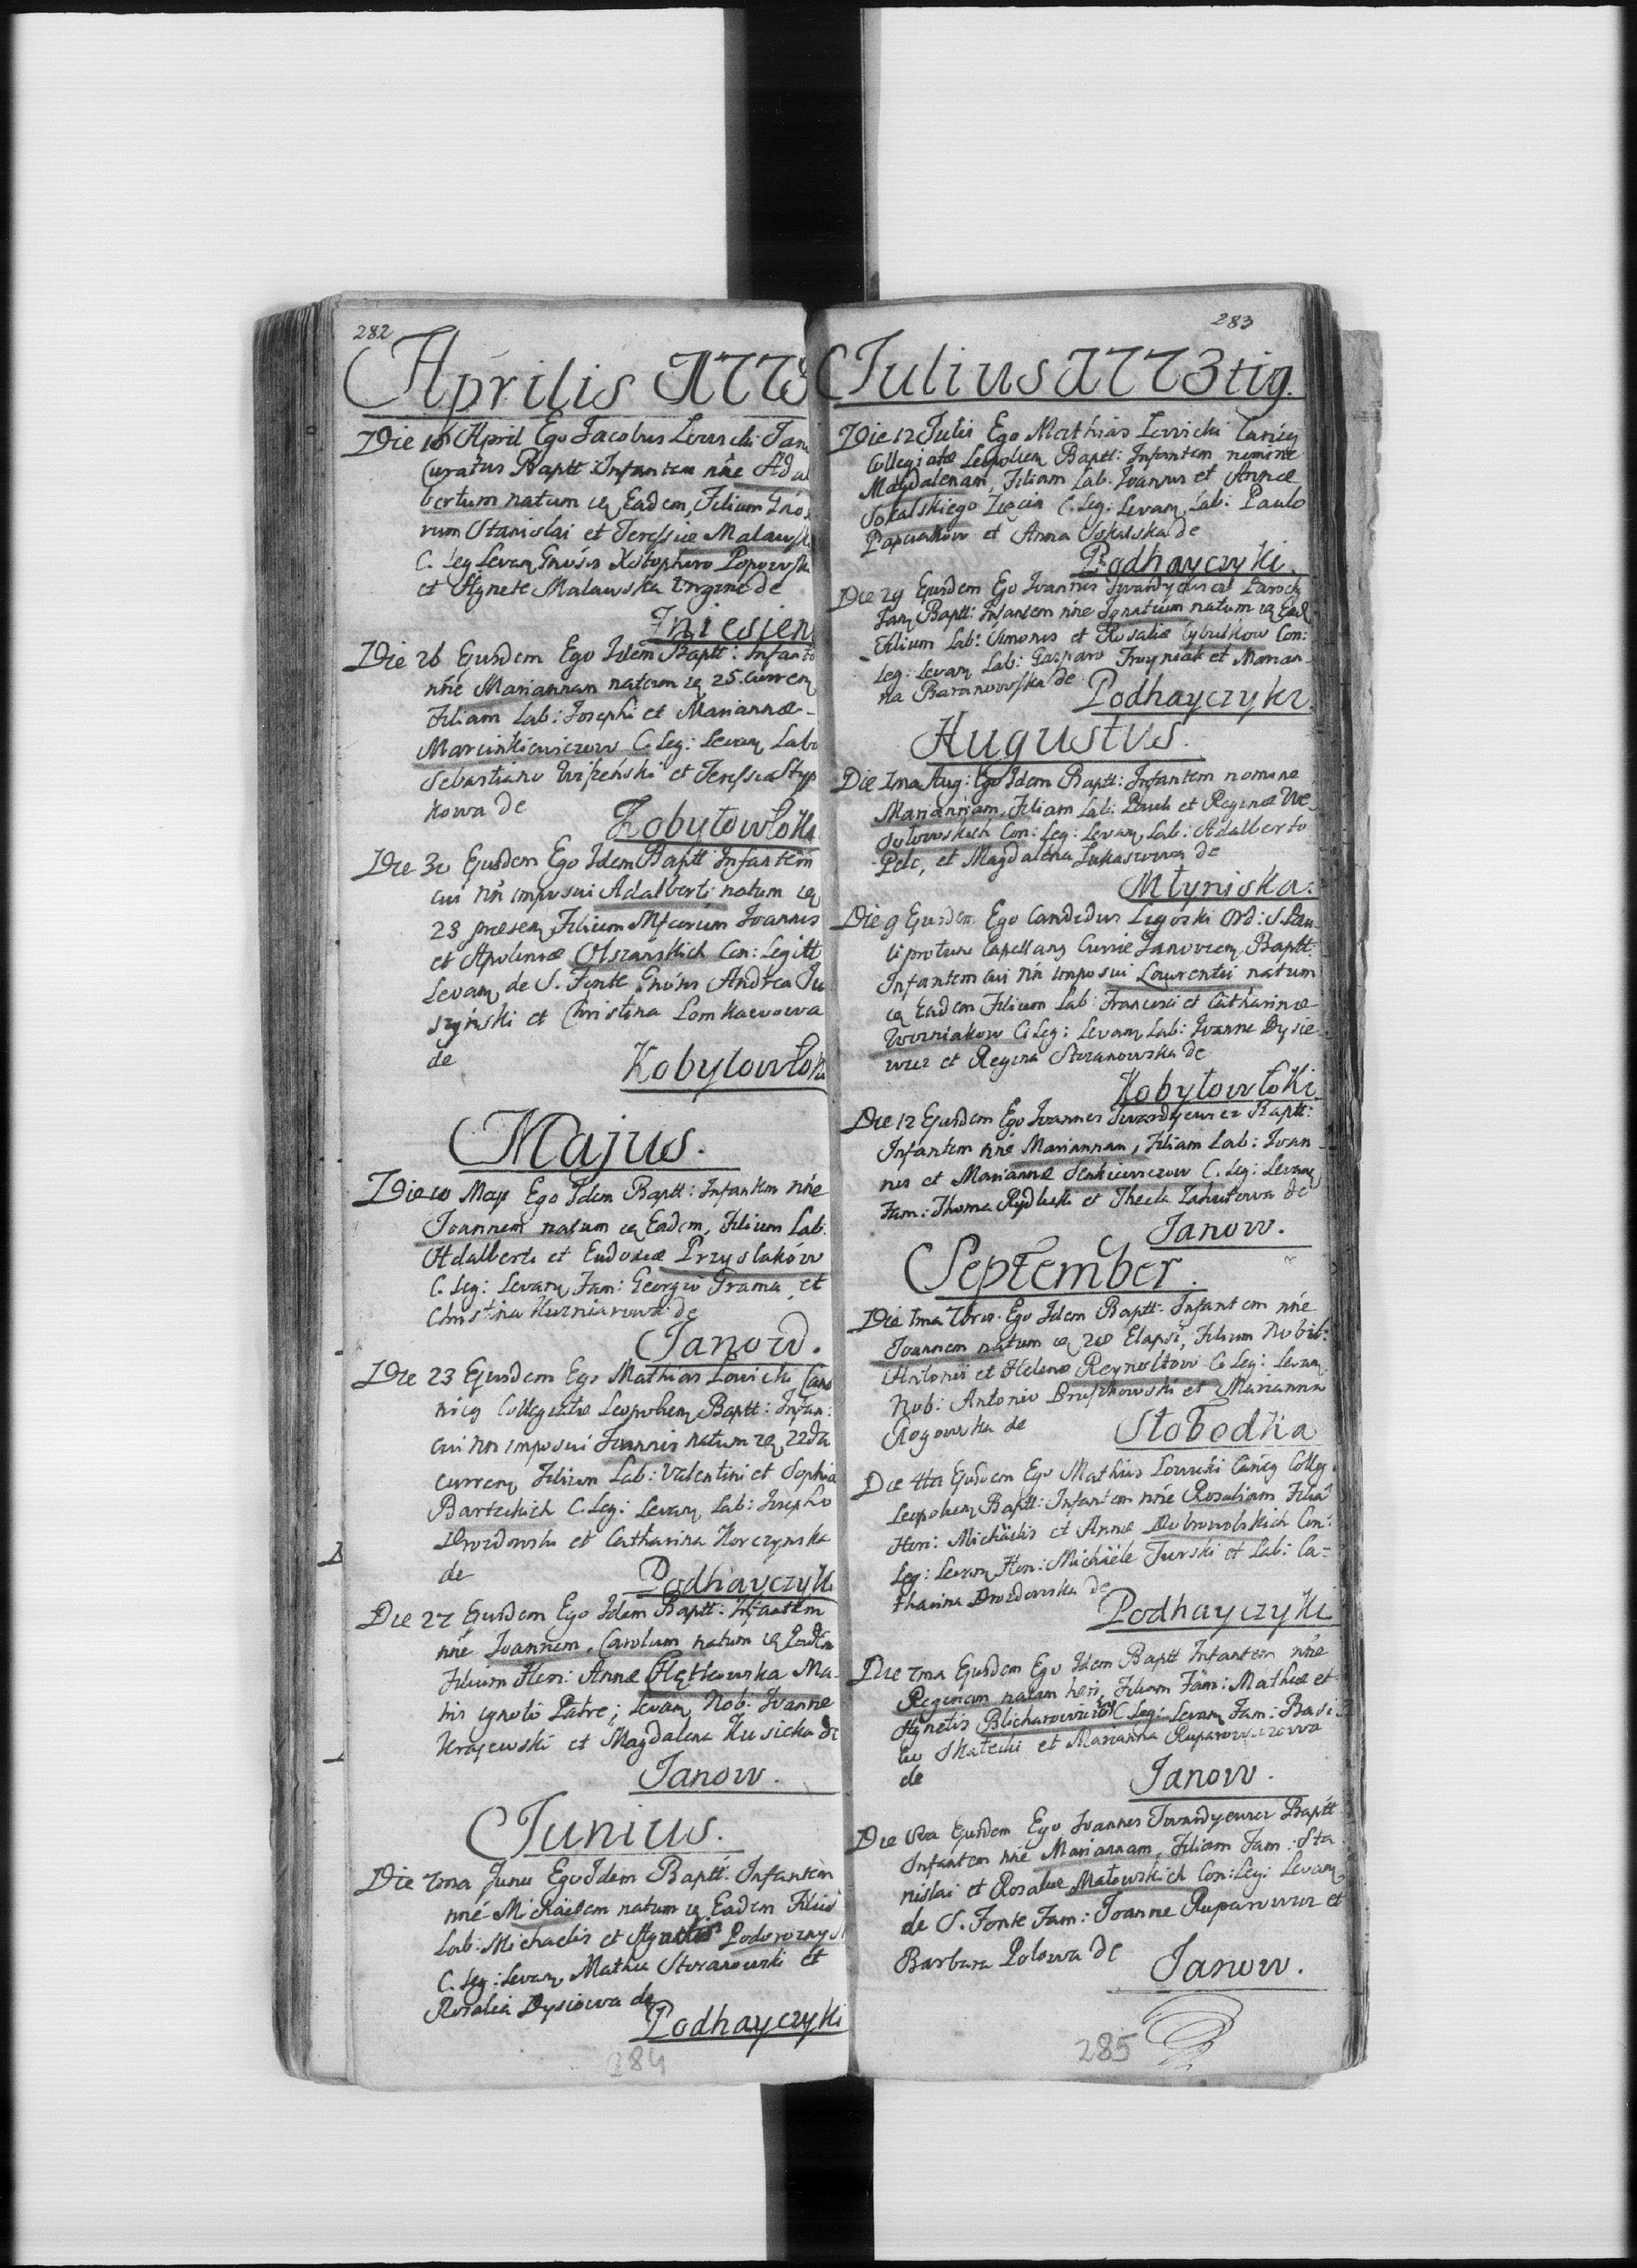 282
Aprilis 1773
Die 18 April Ego Jacobus Lewicki Jan
Curatus Baptt: Infantem nñe Adal
bertum natum eq Eadem, Filium Gño
rum Stanislai et Teressiæ Malawsk
C. Leg Levan Gnosis Xstophoro Popowsk
et Agnete Malawska Virgine de
Die 26 Ejusdem Ego Idem Baptt: Infante
nñe Mariannam natam eq 25. Curren
Filiam Lab: Josephi et Mariannæ
Marcinkiewiczow C. Leg: Levan Labo
Sebastiano et Teressia
kowa de
Kobyłowłoki
Die 30 Ejusdem Ego Idem Baptt Infantem
cui nñ imposui Adalberti natum eq
23 præsen Filium Joannis
et Apolinræ Olszanskich Con: Legitt
Levan de S. Fonte Gnosis Andrea Ju
szynski et Christina
de
Kobyłowłoki
Majus.
Die 10 Maji Ego Idem Baptt: Infantem nñe
Joannem natum eq Eadem, Filium Lab:
Adalberti et Eudoxiæ Przyslaków
C. Leg: Levan Fam: Georgio Grama, et
Christina Kuzniarowa de
Janow.
Die 23 Ejusdem Ego Mathias Lowicki Cano
nicq Collegiatæ Leopolien Baptt: Infan:
cui nñ imposui Joannis natum eq 22da
curren Filium Lab: Valentini et Sophia
Bartckich C. Leg: Levan Lab: Josepho
Drozdowski et Catharina Korczynska
de
Podhayczyki
Die 27 Ejusdem Ego Idem Baptt: Infantem
nñe Joannem, Carolum natum eq Eadem
Filium Hon: Annæ Ma-
tris ignoto Patre; Levan Nob: Joanne
Krajewski et Magdalena Kusicka de
Janow.
Junius.
Die 7ma Junii Ego Idem Baptt: Infantem
nñe Michäelem natum eq Eadem Filiũ
Lab: Michaelis et Agnetis
C. Leg: Levan Mathia Storanowski et
Rosalia Dysiowa de
Podhayczyki
284
283
Julius 1773 tig.
Die 12 Julii Ego Mathias Lowicki Canõcq
Collegiatæ Leopolien Baptt: Infantem nomine
Magdalenam, Filiam Lab. Joannis et Annæ
Sokalskiego Zięcia C. Leg: Levan Lab: Paulo
et Anna Sokalska de
Podhayczyki.
Die 29 Ejusdem Ego Joannes Twardyewicz Paroch
Jan Baptt: Infantem nñe Ignatium natum eq Ead
Filium Lab: Simonis et Rosaliæ Cybulkow Con:
Leg: Levan Lab: Gasparo Troyniak et Marian-
na Baranowska de
Podhayczyki.
Augustus.
Die 1ma Aug: Ego Idem Baptt: Infantem nomine
Mariannam, Filiam Lab: Pauli et Reginæ We
sołowskich Con: Leg: Levan Lab: Adalberto
Pelc, et Magdalena Łukaszowa de
Młyniska.
Die 9 Ejusdem Ego Candidus Ligoski Ord: S. Pau
li protune Capellanq Curiæ Janovien Baptt:
Infantem cui nñ imposui Laurentii natum
eq Eadem Filium Lab: Francisci et Catharinæ
Wozniakow C. Leg: Levan Lab: Joanne Dysie-
wicz et Regina Storanowska de
Kobyłowłoki
Die 12 Ejusdem Ego Joannes Twardyewicz Baptt:
Infantem nñe Mariannam, Filiam Lab: Joan-
nis et Mariannæ C. Leg: Levan
Fam: Thoma et Thecla de
Janow.
September.
Die 1ma 7bris. Ego Idem Baptt: Infantem nñe
Joannem natum eq 28 Elapsi, Filium Nobil:
Antonii et Helenæ Reynoltow C. Leg: Levan
Nob: Antonio Pruszkowski et Marianna
Rogowska de
Słobodka
Die 4ta Ejusdem Ego Mathias Lowicki Canõcq Colleg.
Leopolien Baptt: Infantem nñe Rosaliam Filiã
Hon: Michäelis et Annæ Dobrowolskich Con:
Leg: Levan Hon: Michäele Turski et Lab: Ca-
tharina Drozdowska de
Podhayczyki
Die 7ma Ejusdem Ego Idem Baptt Infantem nñe
Reginam natam heri, Filiam Fam: Mathiæ et
Agnetis Blicharowiczow C. Leg: Levan Fam: Basi-
lio Skałecki et Marianna Ruparowiczowa
de
Janow.
Die 8va Ejusdem Ego Joannes Twardyewicz Baptt
Infantem nñe Mariannam, Filiam Fam: Sta
nislai et Rosaliæ Małowskich Con: Leg: Levan
de S. Fonte Fam: Joanne Ruparowicz et
Barbara Polowa de
Janow.
285